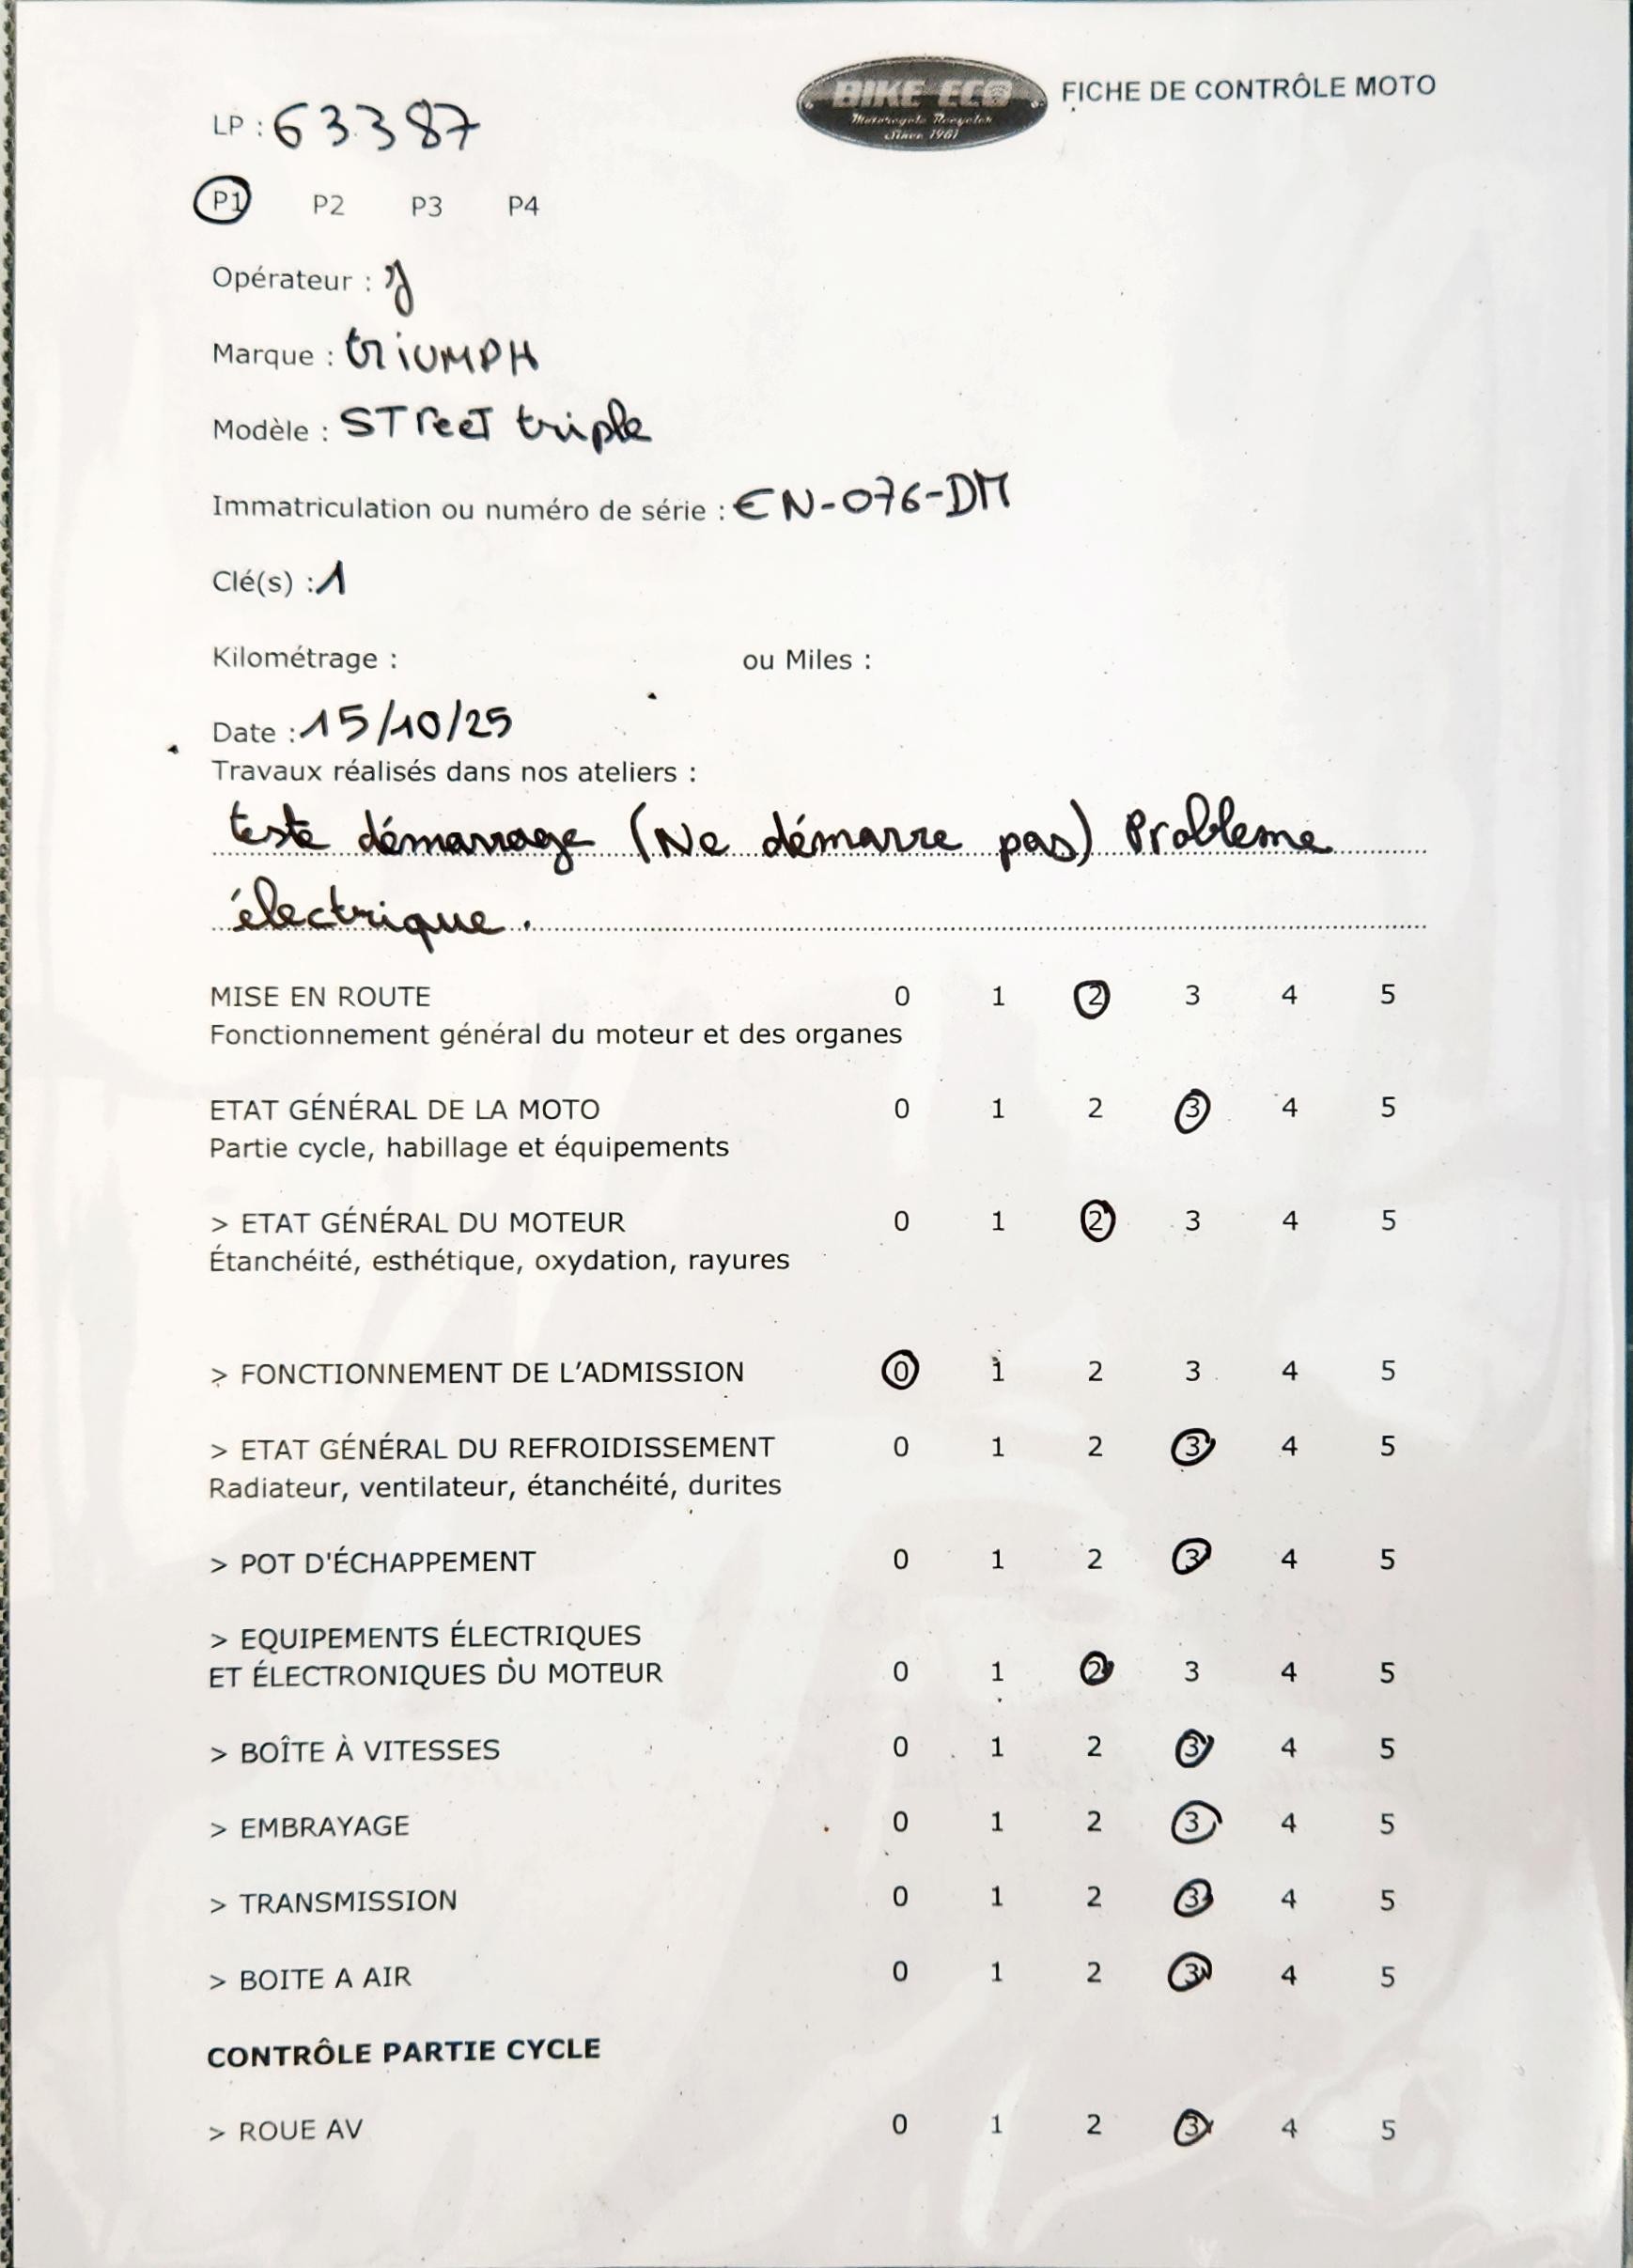 BIKE ECO
Motorcycle Recycler
Since 1981
FICHE DE CONTRÔLE MOTO
LP : 63387
P1 P2 P3 P4
Opérateur :
Marque : triUMPH
Modèle : STreeT triple
Immatriculation ou numéro de série : EN-076-DM
Clé(s) : 1
Kilométrage : ou Miles :
Date : 15/10/25
Travaux réalisés dans nos ateliers :
teste démarrage (Ne démarre pas) Probleme
électrique.
MISE EN ROUTE 0 1 2 3 4 5
Fonctionnement général du moteur et des organes
ETAT GÉNÉRAL DE LA MOTO 0 1 2 3 4 5
Partie cycle, habillage et équipements
> ETAT GÉNÉRAL DU MOTEUR 0 1 2 3 4 5
Étanchéité, esthétique, oxydation, rayures
> FONCTIONNEMENT DE L'ADMISSION 0 1 2 3 4 5
> ETAT GÉNÉRAL DU REFROIDISSEMENT 0 1 2 3 4 5
Radiateur, ventilateur, étanchéité, durites
> POT D'ÉCHAPPEMENT 0 1 2 3 4 5
> EQUIPEMENTS ÉLECTRIQUES
ET ÉLECTRONIQUES DU MOTEUR 0 1 2 3 4 5
> BOÎTE À VITESSES 0 1 2 3 4 5
> EMBRAYAGE 0 1 2 3 4 5
> TRANSMISSION 0 1 2 3 4 5
> BOITE A AIR 0 1 2 3 4 5
CONTRÔLE PARTIE CYCLE
> ROUE AV 0 1 2 3 4 5